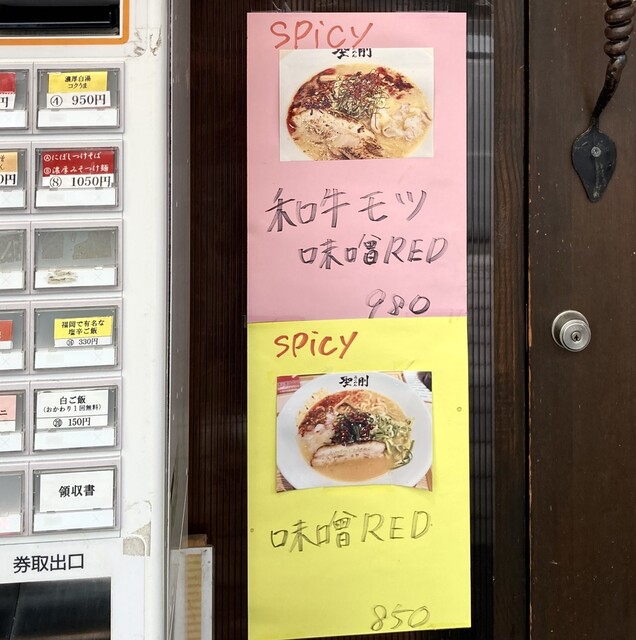 濃厚白湯
コクうま
④ 950円
円
Ⓐにぼしつけそば
Ⓑ濃厚みそつけ麺
⑧ 1050円
0円
福岡で有名な
塩辛ご飯
330円
白ご飯
(おかわり1回無料)
⑳ 150円
ニ
領収書
券取出口
SPICY
和牛モツ
味噌RED
980
SPICY
味噌RED
850